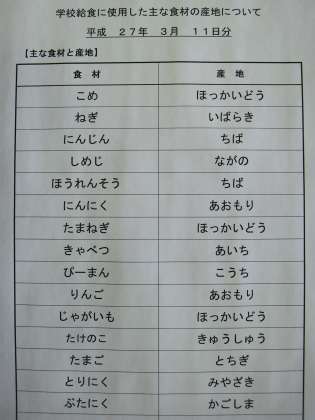 学校給食に使用した主な食材の産地について
平成　２７年　３月　１１日分
【主な食材と産地】
食　材　産　地
こめ　ほっかいどう
ねぎ　いばらき
にんじん　ちば
しめじ　ながの
ほうれんそう　ちば
にんにく　あおもり
たまねぎ　ほっかいどう
きゃべつ　あいち
ぴーまん　こうち
りんご　あおもり
じゃがいも　ほっかいどう
たけのこ　きゅうしゅう
たまご　とちぎ
とりにく　みやざき
ぶたにく　かごしま